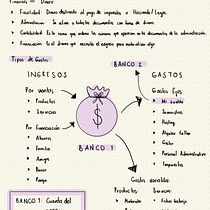 Finanzas → Dinero
Fiscalidad: Dinero destinado al pago de impuestos → Hacienda / Legal
Administración: Se refiere a todos los documentos con fecha de dinero
Contabilidad: Es la suma que ordena los números que aparecen en los documentos de la administración
Financiación: Es el dinero que necesito el negocio para materializar algo
Tipos de Gastos
BANCO 2
INGRESOS
GASTOS
Por ventas
Productos
Servicios
Por financiación
Ahorros
Familia
Amigos
Banco
Pareja
$
BANCO 1
Gastos fijos
Mi sueldo
Suministros
Hosting
Alquiler taller
Gestor
Personal Administrativo
Impuestos
Gastos variables
Productos
Servicios
Materiales
Fichas trabajo
BANCO 1: Cuenta del